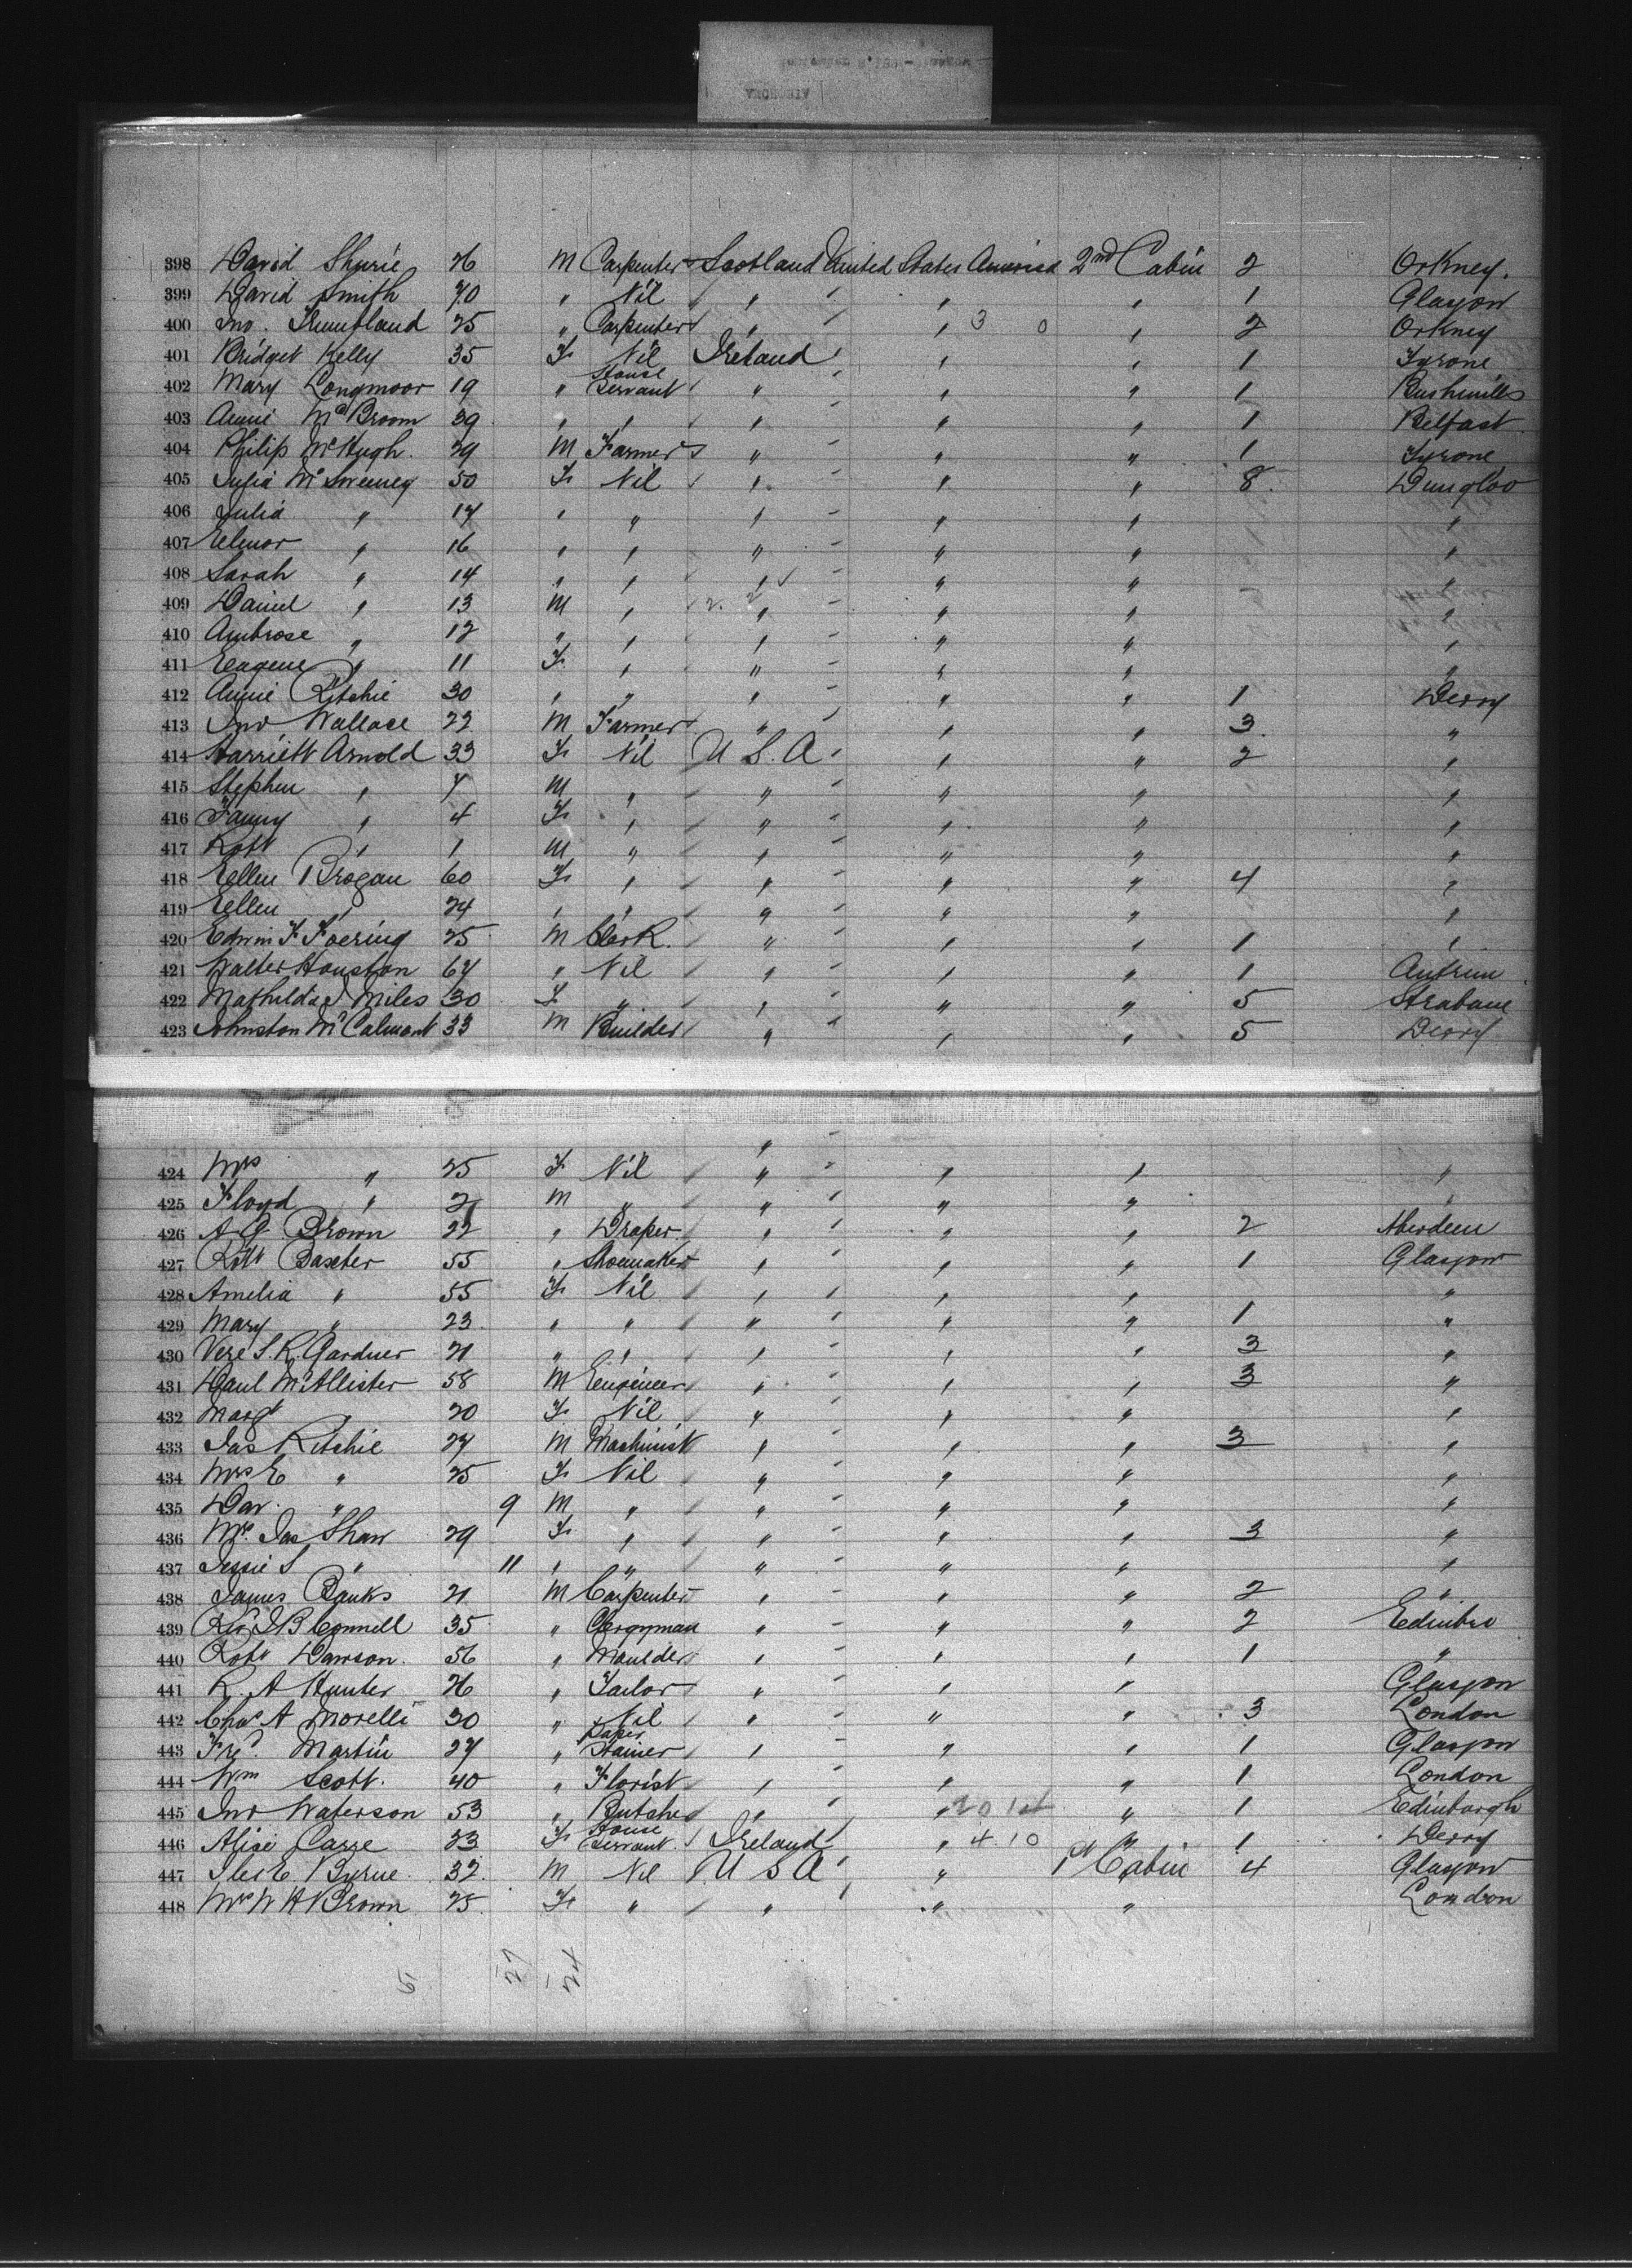 398 David Shurie 26 M Carpenter Scotland United States America 2nd Cabin 2 Orkney.
399 David Smith 70 " Nil " " " 1 Glasgow
400 Jno. 25 " Carpenter " " 3 0 " 2 Orkney
401 Bridget Kelly 35 F Nil Ireland " " 1 Tyrone
402 Mary Longmoor 19 " House Servant " " " 1 Bushmills
403 Annie McBroom 39 " " " " " 1 Belfast
404 Philip McHugh. 29 M Farmer " " " 1 Tyrone
405 Julia McSweeney 50 F Nil " " " 8 Dungloo
406 Julia " 17 " " " " " "
407 Elenor " 16 " " " " " "
408 Sarah " 14 " " " " " "
409 Daniel " 13 M " " " " "
410 Ambrose " 12 " " " " " "
411 Eugene " 11 F " " " " "
412 Annie Ritchie 30 " " " " " 1 Derry
413 Jno Wallace 22 M Farmer " " " 3 "
414 Harriett Arnold 33 F Nil U S. A " " 2 "
415 Stephen " 7 M " " " " "
416 Fanny " 4 F " " " " "
417 Robt " 1 M " " " " "
418 Ellen Brogan 60 F " " " " 4 "
419 Ellen " 24 " " " " " "
420 Edwin F Foering 25 M Clerk. " " " 1 "
421 Walter Houston 67 " Nil " " " 1 Antrim
422 Mathilda J Miles 30 F " " " " 5 Strabane
423 Johnston McCalmont 33 M Builder " " " 5 Derry
"
424 Mrs " 25 F Nil " " " "
425 Floyd " 2 M " " " " "
426 A G Brown 22 " Draper " " " 2 Aberdeen
427 Robt Baxter 55 " Shoemaker " " " 1 Glasgow
428 Amelia " 55 F Nil " " " "
429 Mary " 23 " " " " " 1 "
430 Vere S. R. Gardner 21 " " " " " 3 "
431 Danl McAllister 58 M Engineer " " " 3 "
432 Margt " 20 F Nil " " " "
433 Jas Ritchie 27 M Machinist " " " 3 "
434 Mrs E " 25 F Nil " " " "
435 Dav. " 9 M " " " " "
436 Mrs Jas Shaw 29 F " " " " 3 "
437 Jessie S " 11 " " " " " "
438 James Banks 21 M Carpenter " " " 2 "
439 Rev J B Connell 35 " Clergyman " " " 2 Edinbro
440 Robt Dawson. 56 " Moulder " " " 1 "
441 R A Hunter 26 " Tailor " " " Glasgow
442 Chas A Morelli 30 " Nil " " " 3 London
443 Fred. Martin 27 " Paper Stainer " " " 1 Glasgow
444 Wm Scott. 40 " Florist " " " 1 London
445 Jno Waterson 53 " Butcher " " " 1 Edinburgh
446 Alice Carre 23 F House Servant Ireland " 4 10 " 1 Derry
447 Byrne. 32. M Nil U S A " 1st Cabin 4 Glasgow
448 Mrs W H Brown 25. F " " " " London
6 27 24